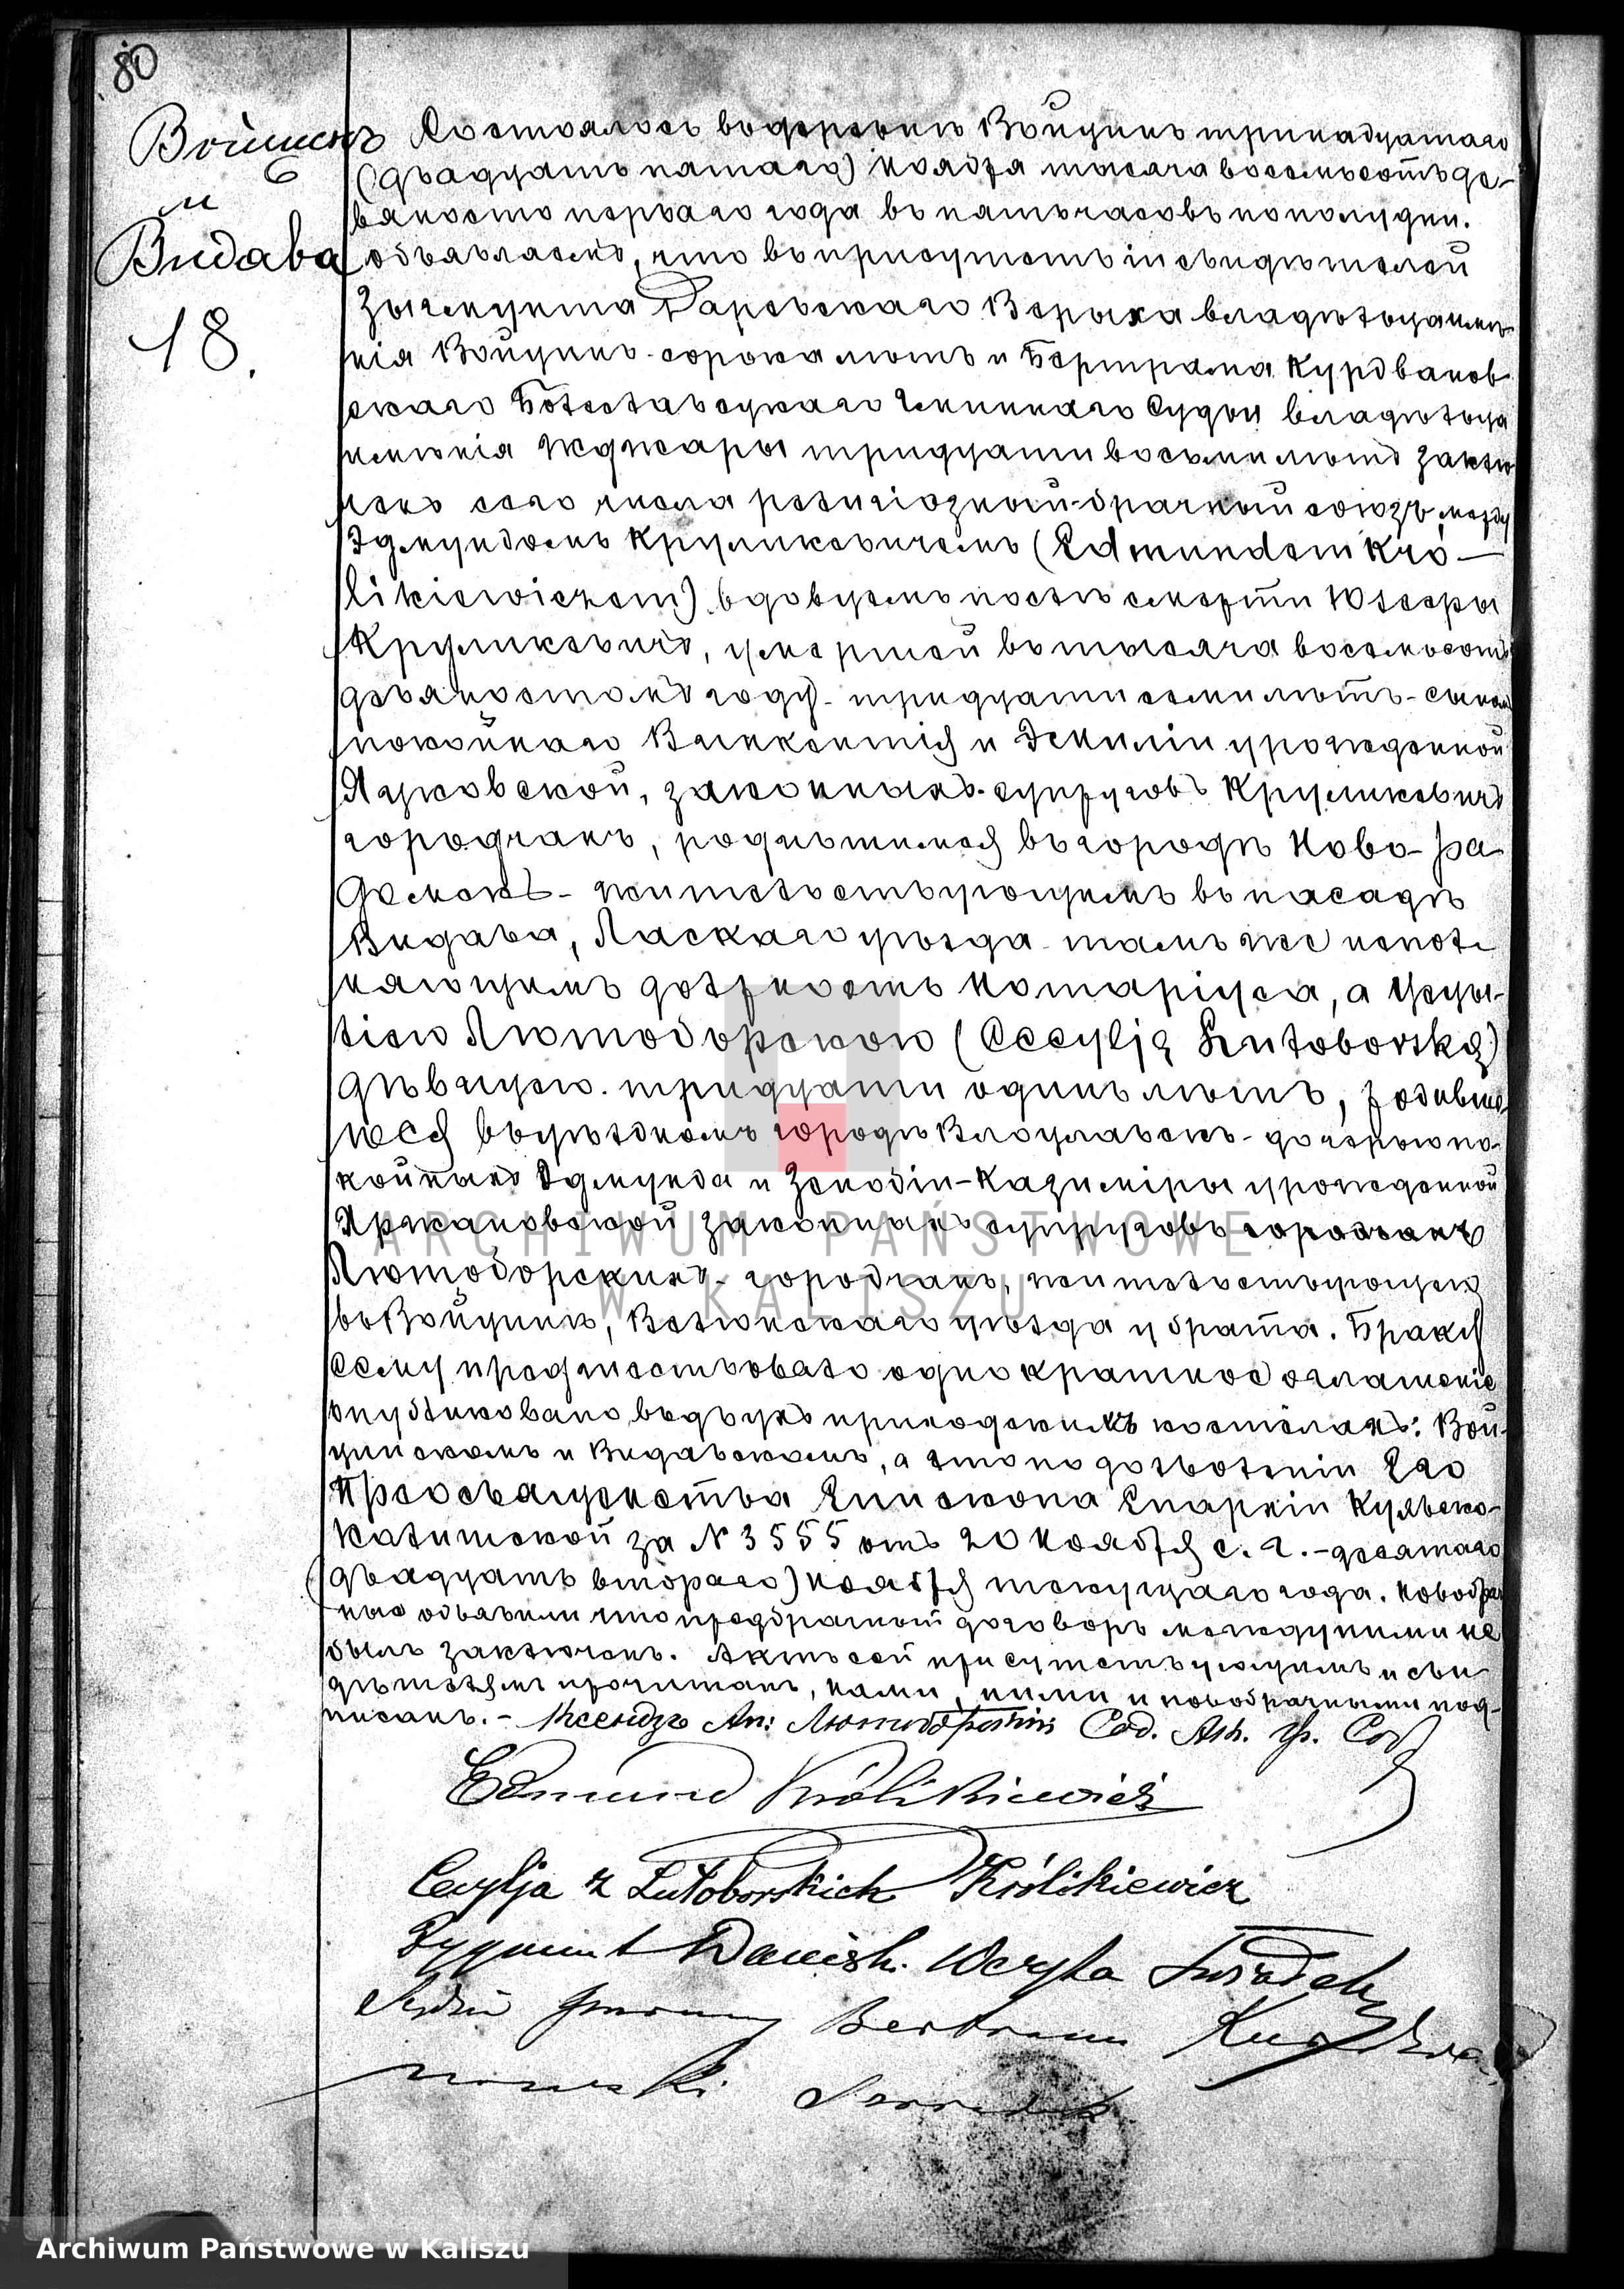 80
Войцинъ
и
Видава
18.
Состоялось въ деревнѣ Войцинѣ тринадцатаго
(двадцать пятаго) Ноября тысяча восемьсотъ де-
вяносто перваго года въ пять часовъ пополудни.
объявляемъ, что въ присутствіи свидѣтелей
Зыгмунта Даровскаго Верыха владѣльца имѣ-
нія Войцинъ сорока лѣтъ и Бертрама Курдванов
скаго Болеславецкаго Гминнаго Судьи владѣльца
имѣнія Жджары тридцати восьми лѣтъ заклю
ченъ сего числа религіозный брачный союзъ между
Эдмундомъ Круликевичемъ (Edmundem Kró-
likiewiczem) вдовцемъ послѣ смерти Юлеоры
Круликевичъ, умершей въ тысяча восемьсотъ
девяностомъ году тридцати семи лѣтъ - сыномъ
покойнаго Викентія и Эмиліи урожденной
Яцковской, законныхъ супруговъ Круликевичъ
горожанъ, родившимся въ городѣ Ново-Ра
домскѣ - жительствующимъ въ посадѣ
Видава, Ласкаго уѣзда тамъ же испол
няющимъ должность Нотаріуса, а Цецы-
ліею Лютоборскою (Cecylją Lutoborską)
дѣвицею тридцати одинъ лѣтъ, родивше-
юся въ уѣздномъ городѣ Влоцлавскъ - дочерью по-
койныхъ Эдмунда и Зенобіи-Казиміры урожденной
Яржановской законныхъ супруговъ горожанъ
Лютоборскихъ - горожанъ, жительствующею
въ Войцинѣ, Велюнскаго уѣзда у брата. Браку
сему предшествовало однократное оглашеніе
опубликовано въ двухъ приходскихъ костёлахъ: Вой-
цинскомъ и Видавскомъ, а это по дозволеніи Его
Преосвященства Епископа Епархіи Куявско-
Калишской за N 3555 отъ 20 Ноября с. г. - десятаго
(двадцать втораго) Ноября текущаго года. Новобрач
ные объявили что предбрачный договоръ между ними не
былъ заключенъ. Актъ сей присутствующимъ и сви
дѣтелямъ прочитанъ, нами, ними и новобрачными под-
писанъ. - Ксендзъ Ан: Лютоборскій Сод. Акт. Гр. Сос
Edmund Królikiewicz
Cecylja z Lutoborskich Królikiewicz
Zygmunt Weryha Świadek
Sędzia gminny Bertram Kurdwa
nowski Świadek
ARCHIWUM PAŃSTWOWE
W KALISZU
Archiwum Państwowe w Kaliszu